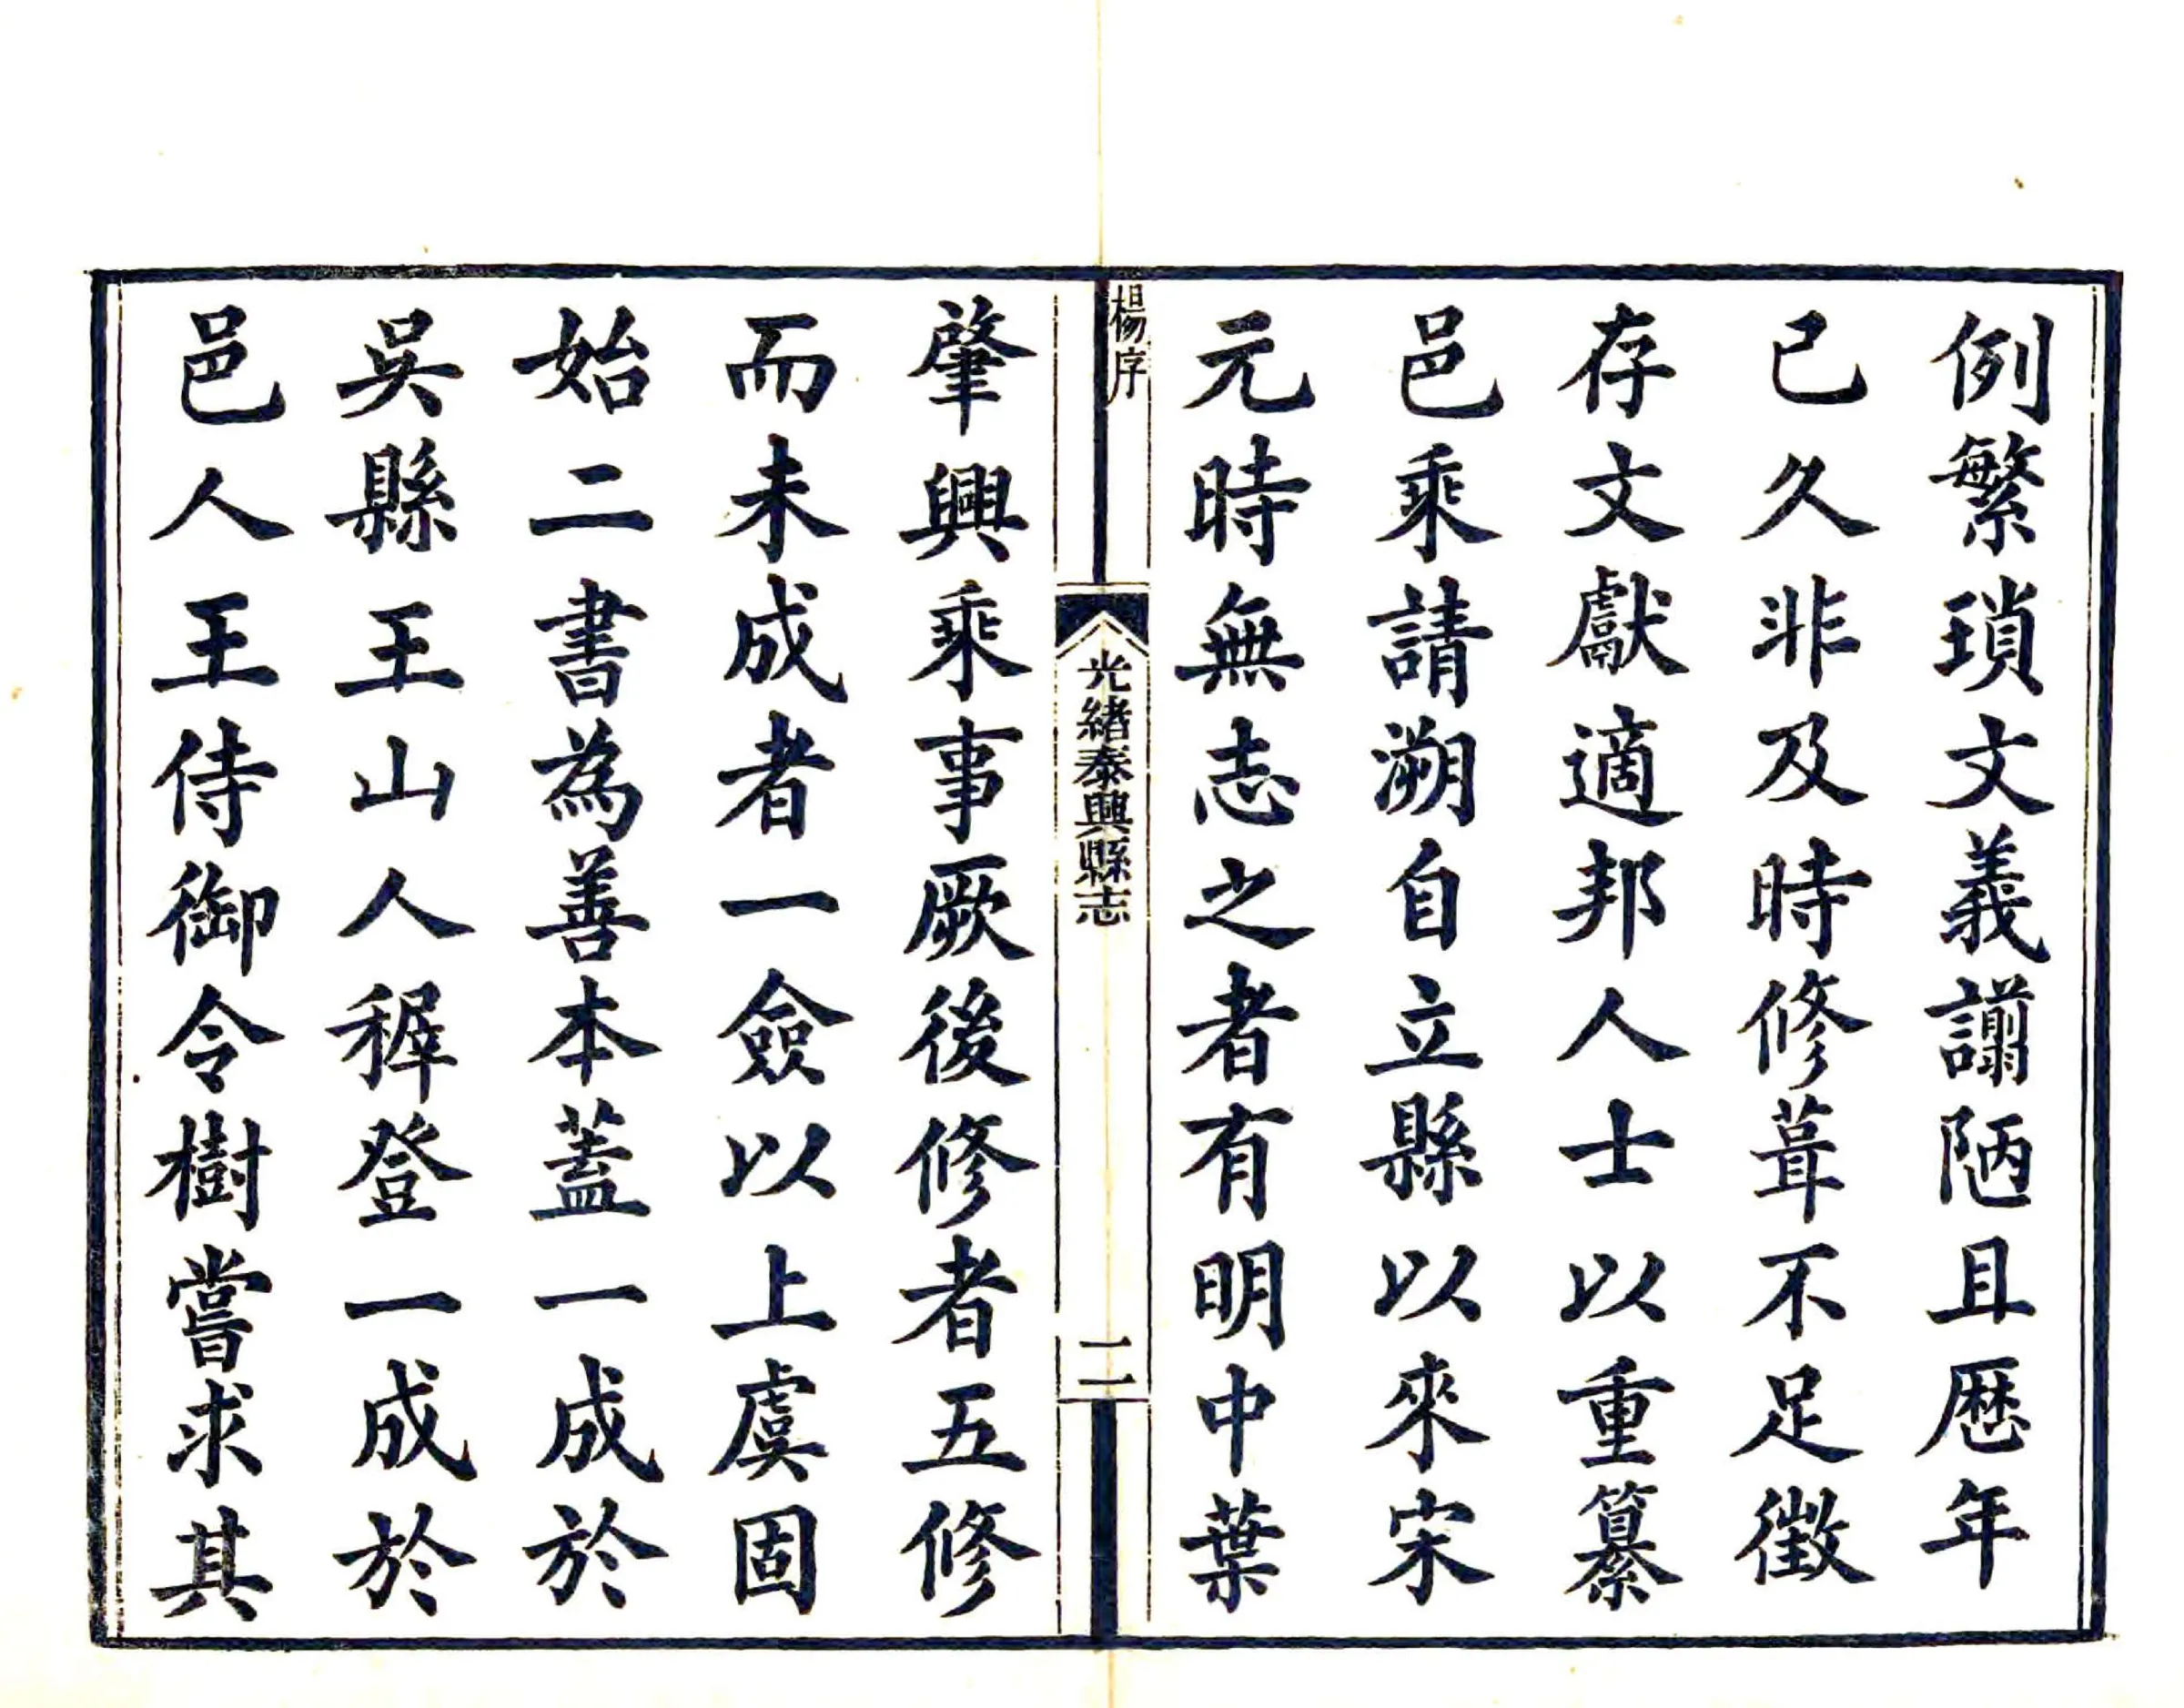 例繁瑣文義謭陋且歷年
已久非及時修葺不足徵
存文獻適邦人士以重纂
邑乘請溯自立縣以來宋
元時無志之者有明中葉
楊序
光緒泰興縣志
二
肇興乘事厥後修者五修
而未成者一僉以上虞固
始二書為善本蓋一成於
吳縣王山人穉登一成於
邑人王侍御令樹嘗求其